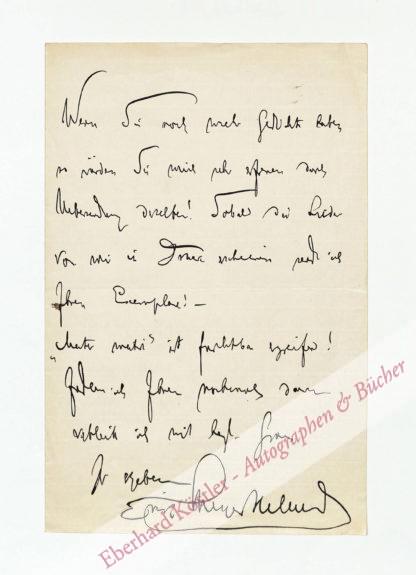 Wenn Sie noch mehr Gedichte haben
so würden Sie mich sehr erfreuen durch
Uebersendung derselben! Sobald die Lieder
von mir in Druck erscheinen send ich
Ihnen Exemplare! —
„Mater mater" ist furchtbar ergreifend!
Indem ich Ihnen nochmals danke
verbleib ich mit herzl. Gruss
Ihr ergebener
Meyer Helmund
Eberhard Köstler - Autographen & Bücher